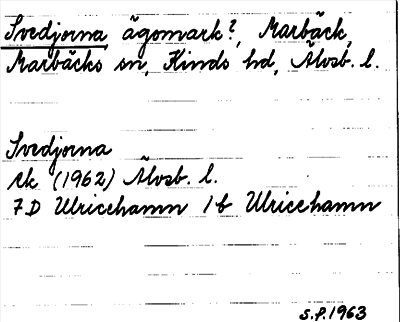 Svedjorna, ägomark?, Marbäck,
Marbäcks sn, Kinds hd, Älvsb. l.
Svedjorna
ek (1962) Älvsb. l.
7D Ulricehamn 1b Ulricehamn
S.F. 1963